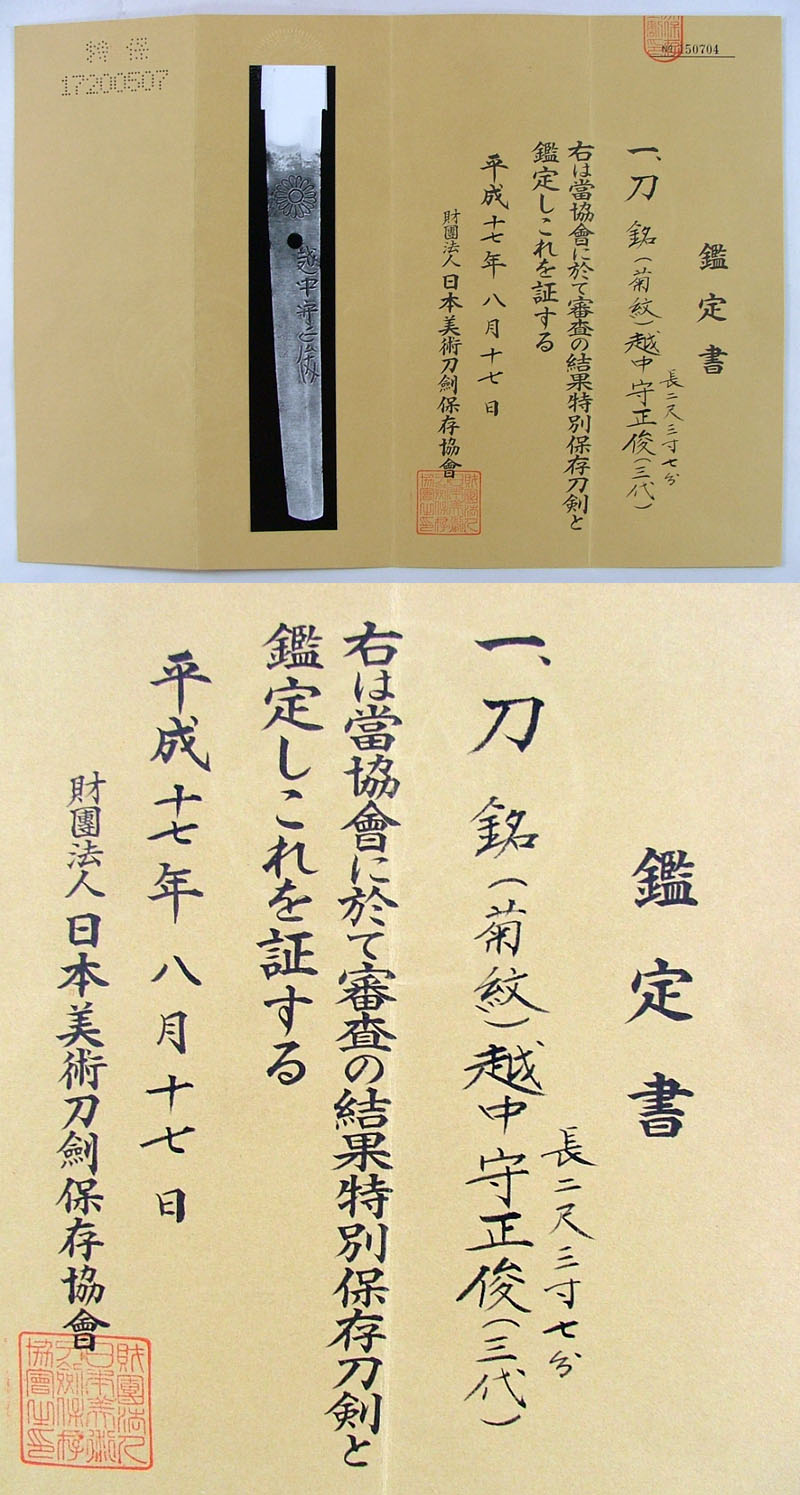 特保
17200507
№ 150704
鑑定書
一、刀 銘(菊紋)越中守正俊(三代)
長二尺三寸七分
右は當協會に於て審査の結果特別保存刀剣と
鑑定しこれを証する
平成十七年八月十七日
財團法人日本美術刀劍保存協會
財團法人日本美術刀劍保存協會之印
越中守正俊
鑑定書
一、刀 銘(菊紋)越中守正俊(三代)
長二尺三寸七分
右は當協會に於て審査の結果特別保存刀剣と
鑑定しこれを証する
平成十七年八月十七日
財團法人日本美術刀劍保存協會
財團法人日本美術刀劍保存協會之印